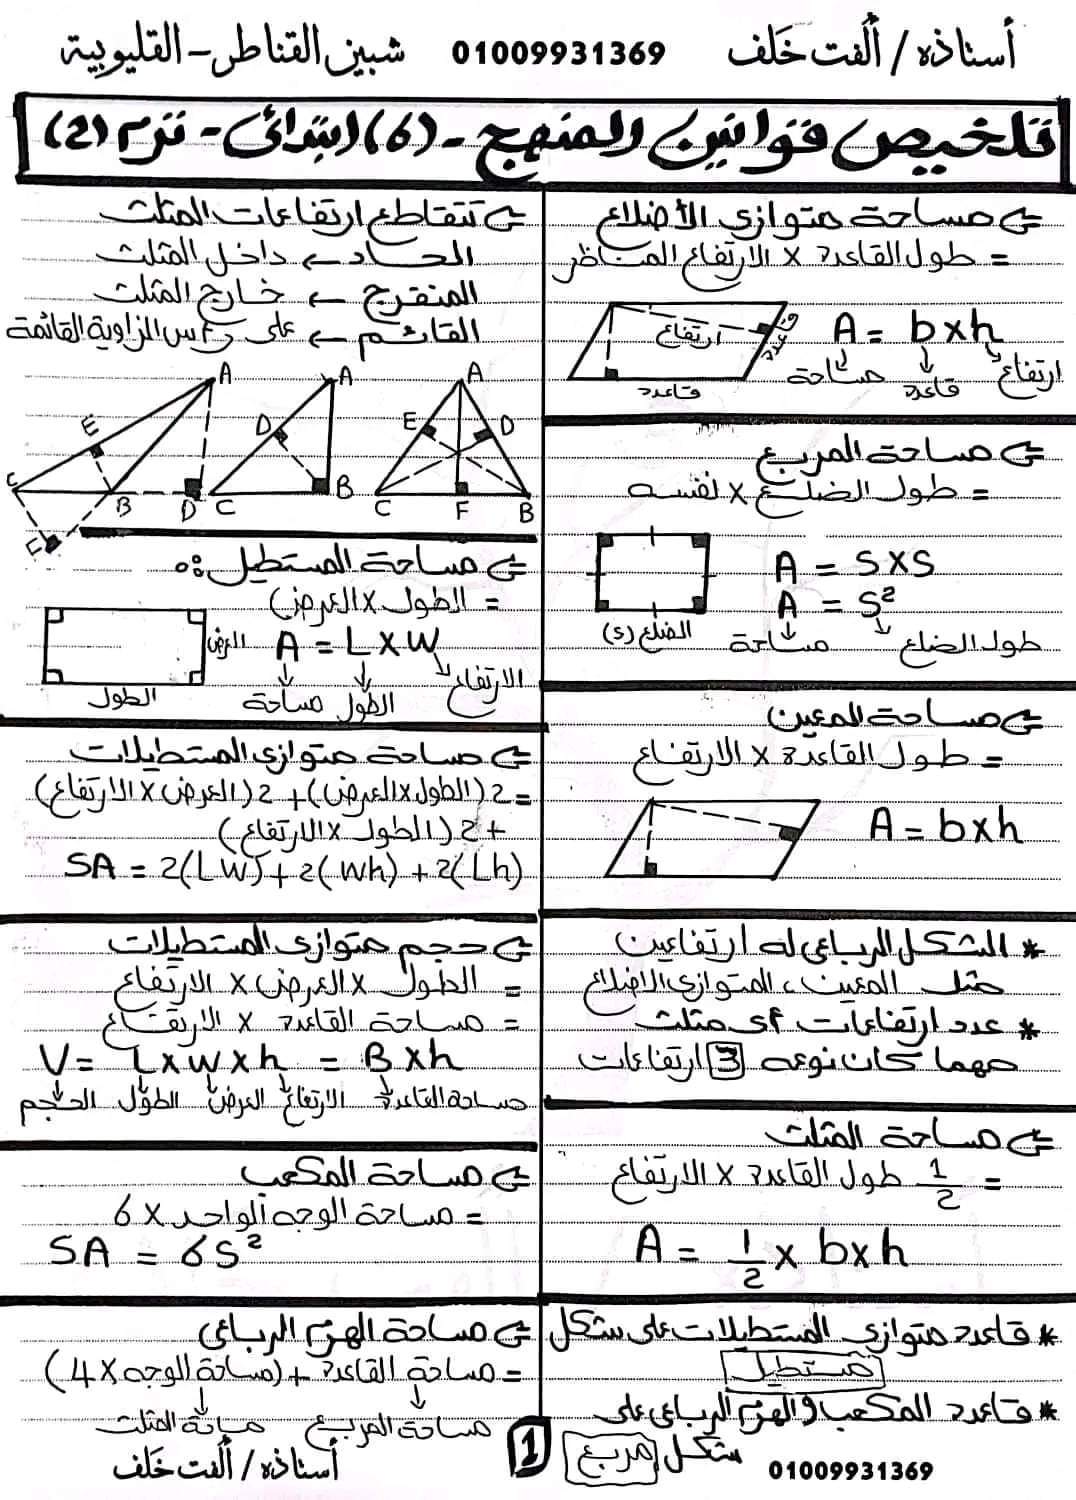 أستاذه / ألفت خلف 01009931369 شبين القناطر - القليوبية
تلخيص قوانين المنهج - (6) ابتدائى - ترم (2)
مساحة متوازي الأضلاع
= طول القاعدة × الارتفاع المناظر
ارتفاع
قاعدة
قاعدة
A = b×h
مساحة قاعدة ارتفاع
مساحة المربع
= طول الضلع × نفسه
A = S×S
A = S²
مساحة طول الضلع
الضلع (S)
مساحة المعين
= طول القاعدة × الارتفاع
A = b×h
* الشكل الرباعى له ارتفاعين
مثل المعين، المتوازي الاضلاع
* عدد ارتفاعات أى مثلث
مهما كان نوعه 3 ارتفاعات
مساحة المثلث
= 1/2 طول القاعدة × الارتفاع
A = 1/2 × b×h
* قاعدة متوازي المستطيلات على شكل
مستطيل
* قاعدة المكعب والهرم الرباعى على
شكل مربع
01009931369
تتقاطع ارتفاعات المثلث
الحاد ← داخل المثلث
المنفرج ← خارج المثلث
القائم ← على رأس الزاوية القائمة
A E C B D F
A D B C
A E D C F B
مساحة المستطيل :
= الطول × العرض)
العرض
الطول
A = L×W
مساحة الطول الارتفاع
مساحة متوازى المستطيلات
= 2(الطول×العرض)+ 2(العرض×الارتفاع)
+ 2(الطول×الارتفاع)
SA = 2(LW)+2(Wh)+2(Lh)
حجم متوازى المستطيلات
= الطول × العرض × الارتفاع
= مساحة القاعدة × الارتفاع
V= L×W×h = B×h
الحجم الطول العرض الارتفاع مساحة القاعدة
مساحة المكعب
= مساحة الوجه الواحد × 6
SA = 6S²
مساحة الهرم الرباعى
= مساحة القاعدة + (مساحة الوجه × 4)
مساحة المربع مساحة المثلث
أستاذه / ألفت خلف
1